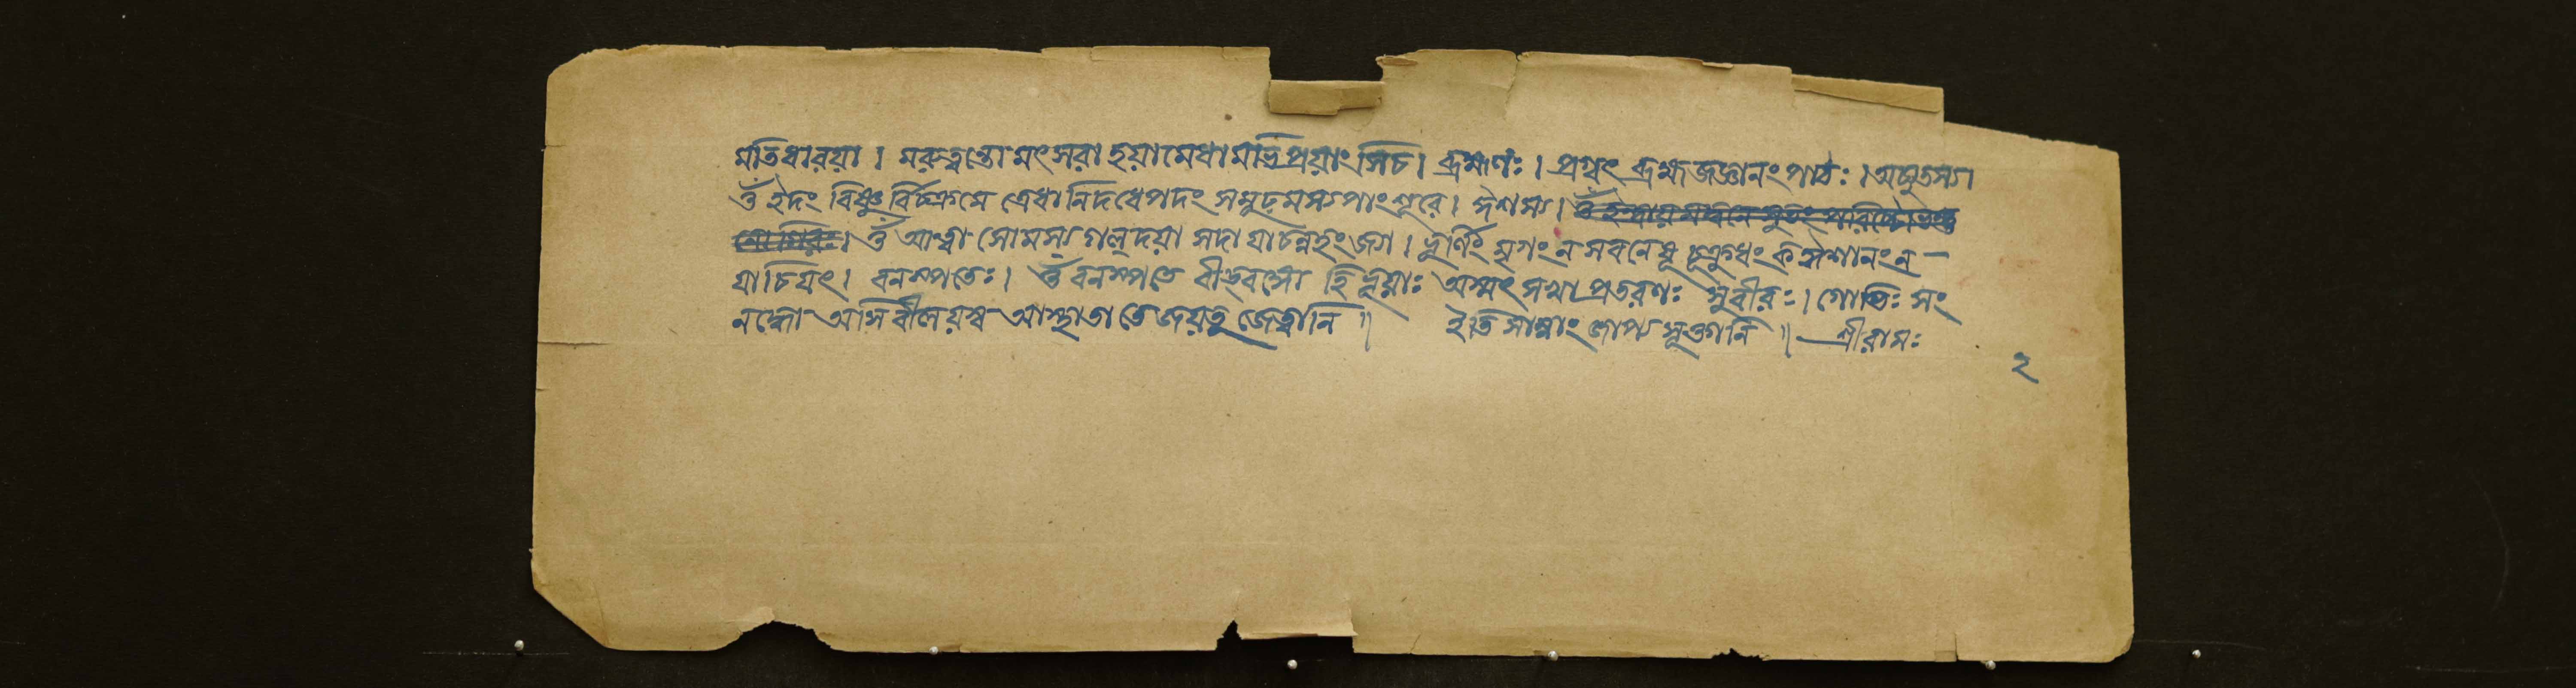 মতিধারয়া। মরুত্বন্তো মৎসরা হয়া মেধামভিপ্রয়াংসি চ। ব্রহ্মণঃ। প্রথ্বৎ ব্রহ্মজজ্ঞানং পাঠঃ। অচ্যুতস্য।
ওঁ ইদং বিষ্ণুর্বিচক্রমে ত্রেধানিদধেপদং সমূঢ়মস্য পাংশুরে। ঈশস্য।
ওঁ আত্বা সোমস্য গল্দয়া সদা যাচন্নহং জ্যা। ভূর্ণিং মৃগং ন সবনেষু চুক্রুধং ক ঈশানং ন
যাচিষৎ। বনস্পতেঃ। ওঁ বনস্পতে বীড্বঙ্গো হি ভূয়াঃ অস্মৎ সখা প্রতরণঃ সুবীরঃ। গোভিঃ সং
নদ্ধো অসি বীলয়স্ব আস্থাতা তে জয়তু জেত্বানি॥ ইতি সাম্নাং জাপ্য সূক্তানি॥ শ্রীরামঃ
২